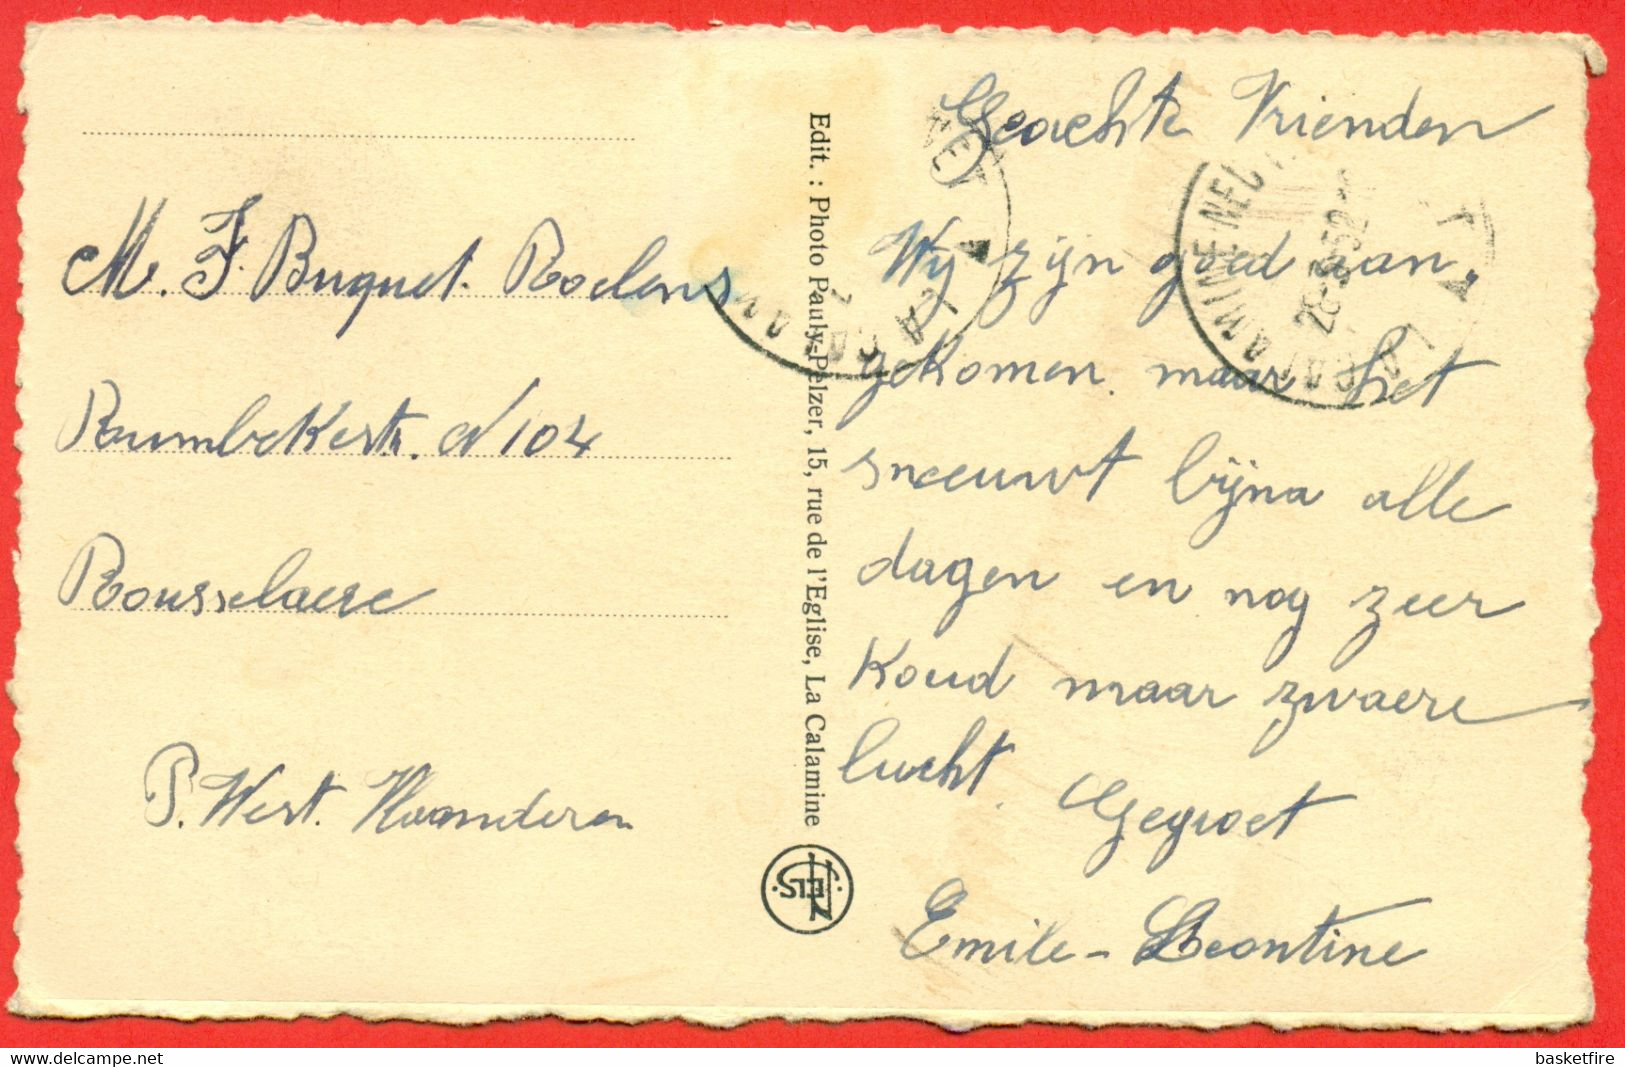 M. F. Buquet. Roelens
Rumbekestr. N 104
Rousselaere
P. West. Vlaanderen
Edit. : Photo Pauly-Pelzer, 15, rue de l'Eglise, La Calamine
NELS
Geachte Vrienden
Wij zijn goed aan.
gekomen maar het
sneeuwt bijna alle
dagen en nog zeer
koud maar zwaere
lucht. Gegroet
Emile - Leontine
CALAMINE NEU
28-3-52
delcampe.net
basketfire